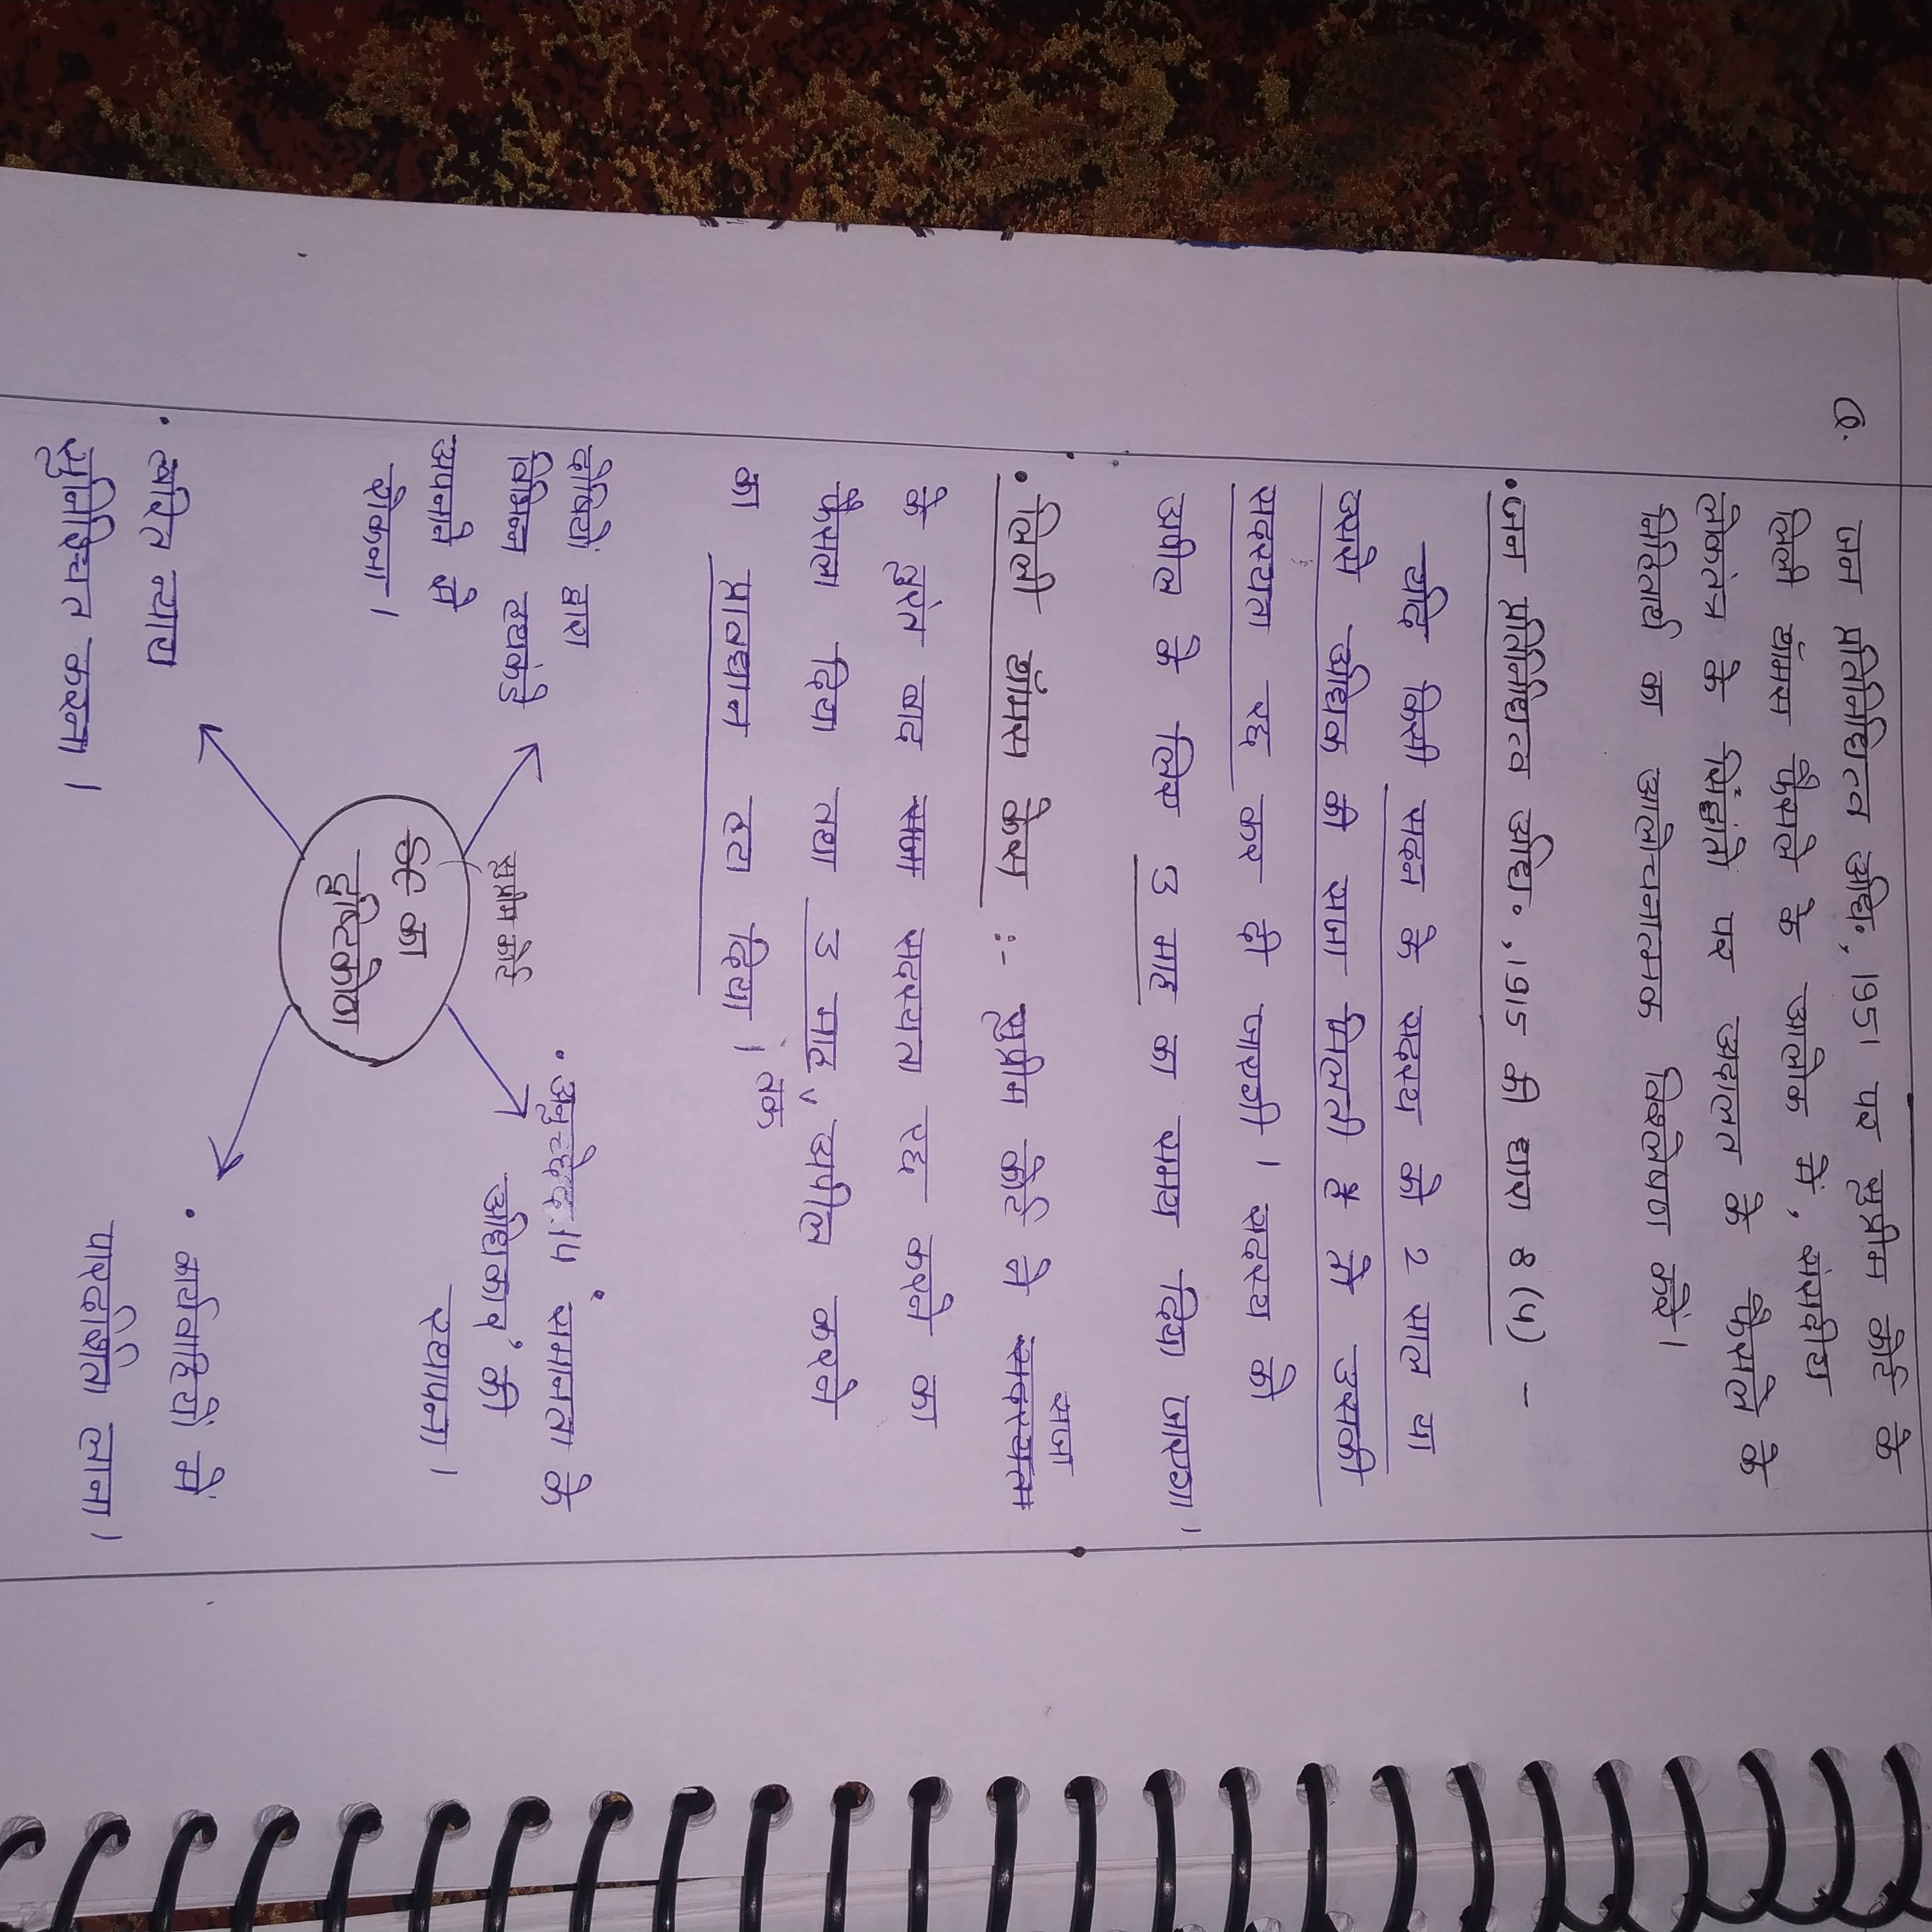 Q. जन प्रतिनिधित्व अधि., 1951 पर सुप्रीम कोर्ट के
लिली थॉमस फैसले के आलोक में, संसदीय
लोकतंत्र के सिद्धांतो पर अदालत के फैसले के
निहितार्थ का आलोचनात्मक विश्लेषण करें।
• जन प्रतिनिधित्व अधि., 1915 की धारा 8 (4) -
यदि किसी सदन के सदस्य को 2 साल या
उससे अधिक की सजा मिलती हैं तो उसकी
सदस्यता रद्द कर दी जाएगी । सदस्य को
अपील के लिए 3 माह का समय दिया जाएगा।
• लिली थॉमस केस :- सुप्रीम कोर्ट ने सजा
के तुरंत बाद सदस्यता रद्द करने का
फैसला दिया तथा 3 माह तक अपील करने
का प्रावधान हटा दिया।
दोषियों द्वारा
विभिन्न हथकंडे
अपनाने से
रोकना ।
• अनुच्छेद.14 समानता के
अधिकार' की
स्थापना ।
सुप्रीम कोर्ट
SC का
दृष्टिकोण
• त्वरित न्याय
सुनिश्चित करना ।
• कार्यवाहियों में
पारदर्शिता लाना।